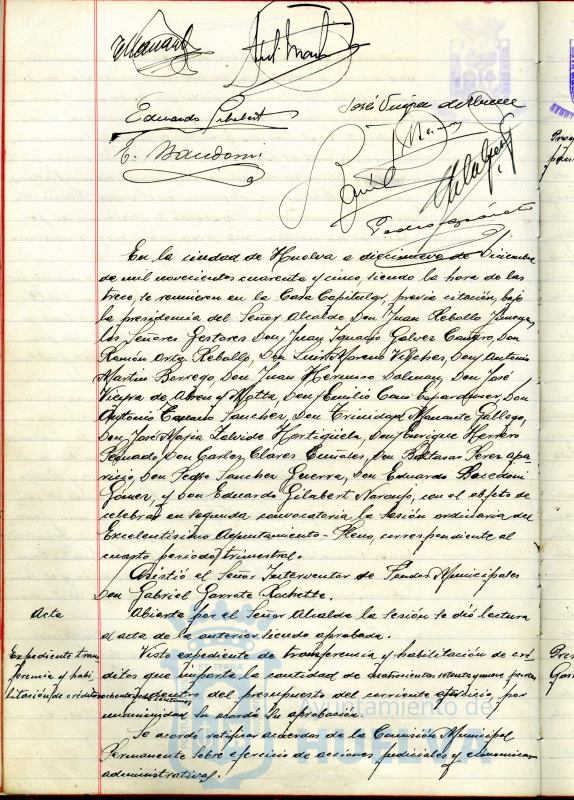 Eduardo Gilabert
E. Bacedoni
En la ciudad de Huelva a diecinueve de Diciembre
de mil novecientos cuarenta y cinco, siendo la hora de las
trece, se reunieron en la Casa Capitular, previa citación, bajo
la presidencia del Señor Alcalde Don Juan Rebollo
los Señores Gestores Don Juan Ignacio Galvez Cangro, Don
Ramón Ortiz Rebollo, Don Moreno Vilches, Don Antonio
Martin Borrego, Don Juan Hermoso Dalmau, Don José
Vieyra de Abreu y Motta, Don Emilio Cano Don
Antonio Sanchez, Don Trinidad Gallego,
Don José Maria Hortigüela, Don Enrique Herrero
Don Carlos Clares Don Baltasar Perez Apa-
ricio, Don Pedro Sanchez Guerra, Don Eduardo Bacedoni
Gómez, y Don Eduardo Gilabert Naranjo, con el objeto de
celebrar en segunda convocatoria la sesión ordinaria del
Excelentísimo Ayuntamiento-Pleno, correspondiente al
cuarto periodo trimestral.
Asistió el Señor Interventor de Fondos Municipales
Don Gabriel Garrote
Acta
Abierta por el Señor Alcalde la sesión se dió lectura
al acta de la anterior siendo aprobada.
Expediente trans
ferencia y habi
litación de créditos
Visto expediente de transferencia y habilitación de cré-
ditos que importa la cantidad de
dentro del presupuesto del corriente ejercicio, por
unanimidad se acordó su aprobación.
Se acordó ratificar acuerdos de la Comisión Municipal
Permanente sobre ejercicio de acciones judiciales y económicas
administrativas.
Ayuntamiento de
HUELVA